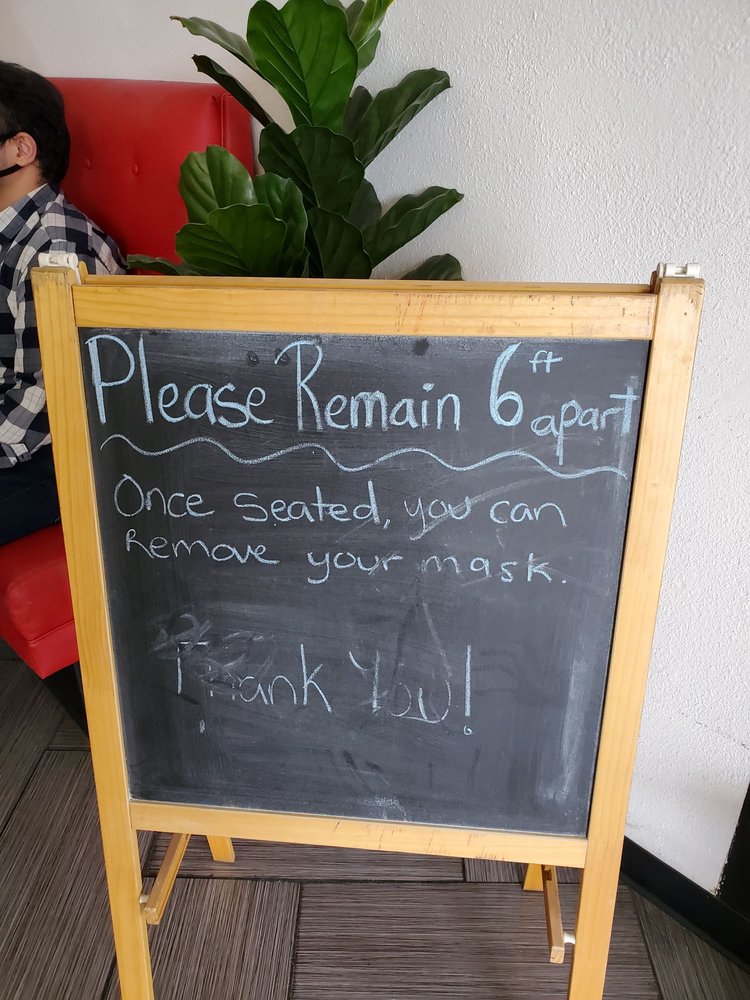 Please Remain 6ft apart
Once seated, you can
Remove your mask.
Thank You!